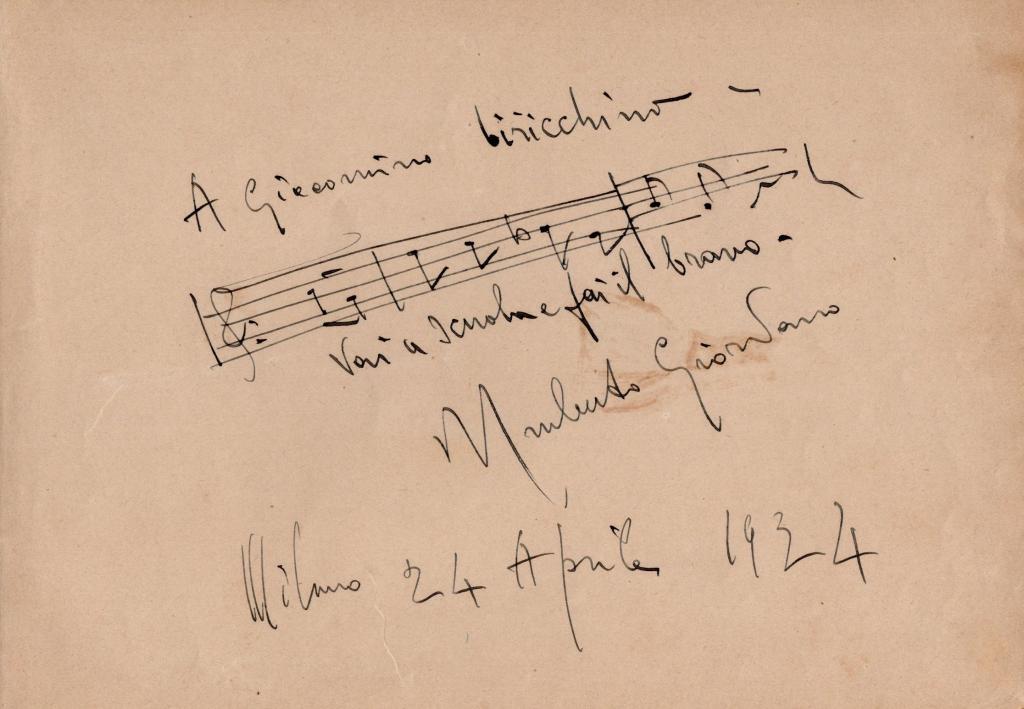 A Giacomino biricchino -
Vai a scuola e fai il bravo -
Umberto Giordano
Milano 24 Aprile 1924